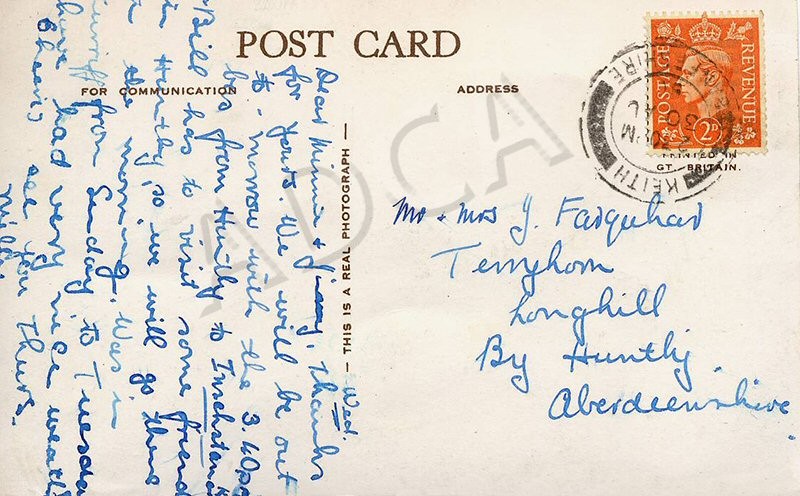 POST CARD
FOR COMMUNICATION
ADDRESS
Wed.
Dear Minnie & Jimmy, Thanks
for yours. We will be out
to-morrow with the 3.40pm
bus from Huntly to
Bill has to visit some friends
in Huntly, so we will go there
in the morning. Was in
from Sunday to Tuesday
have had very nice weather
Cheerio see you Thurs.
THIS IS A REAL PHOTOGRAPH
POSTAGE
REVENUE
2D
PRINTED IN
GT. BRITAIN.
KEITH
Mr & Mrs J. Farquhar
Terryhorn
Longhill
By Huntly
Aberdeenshire.
ADCA